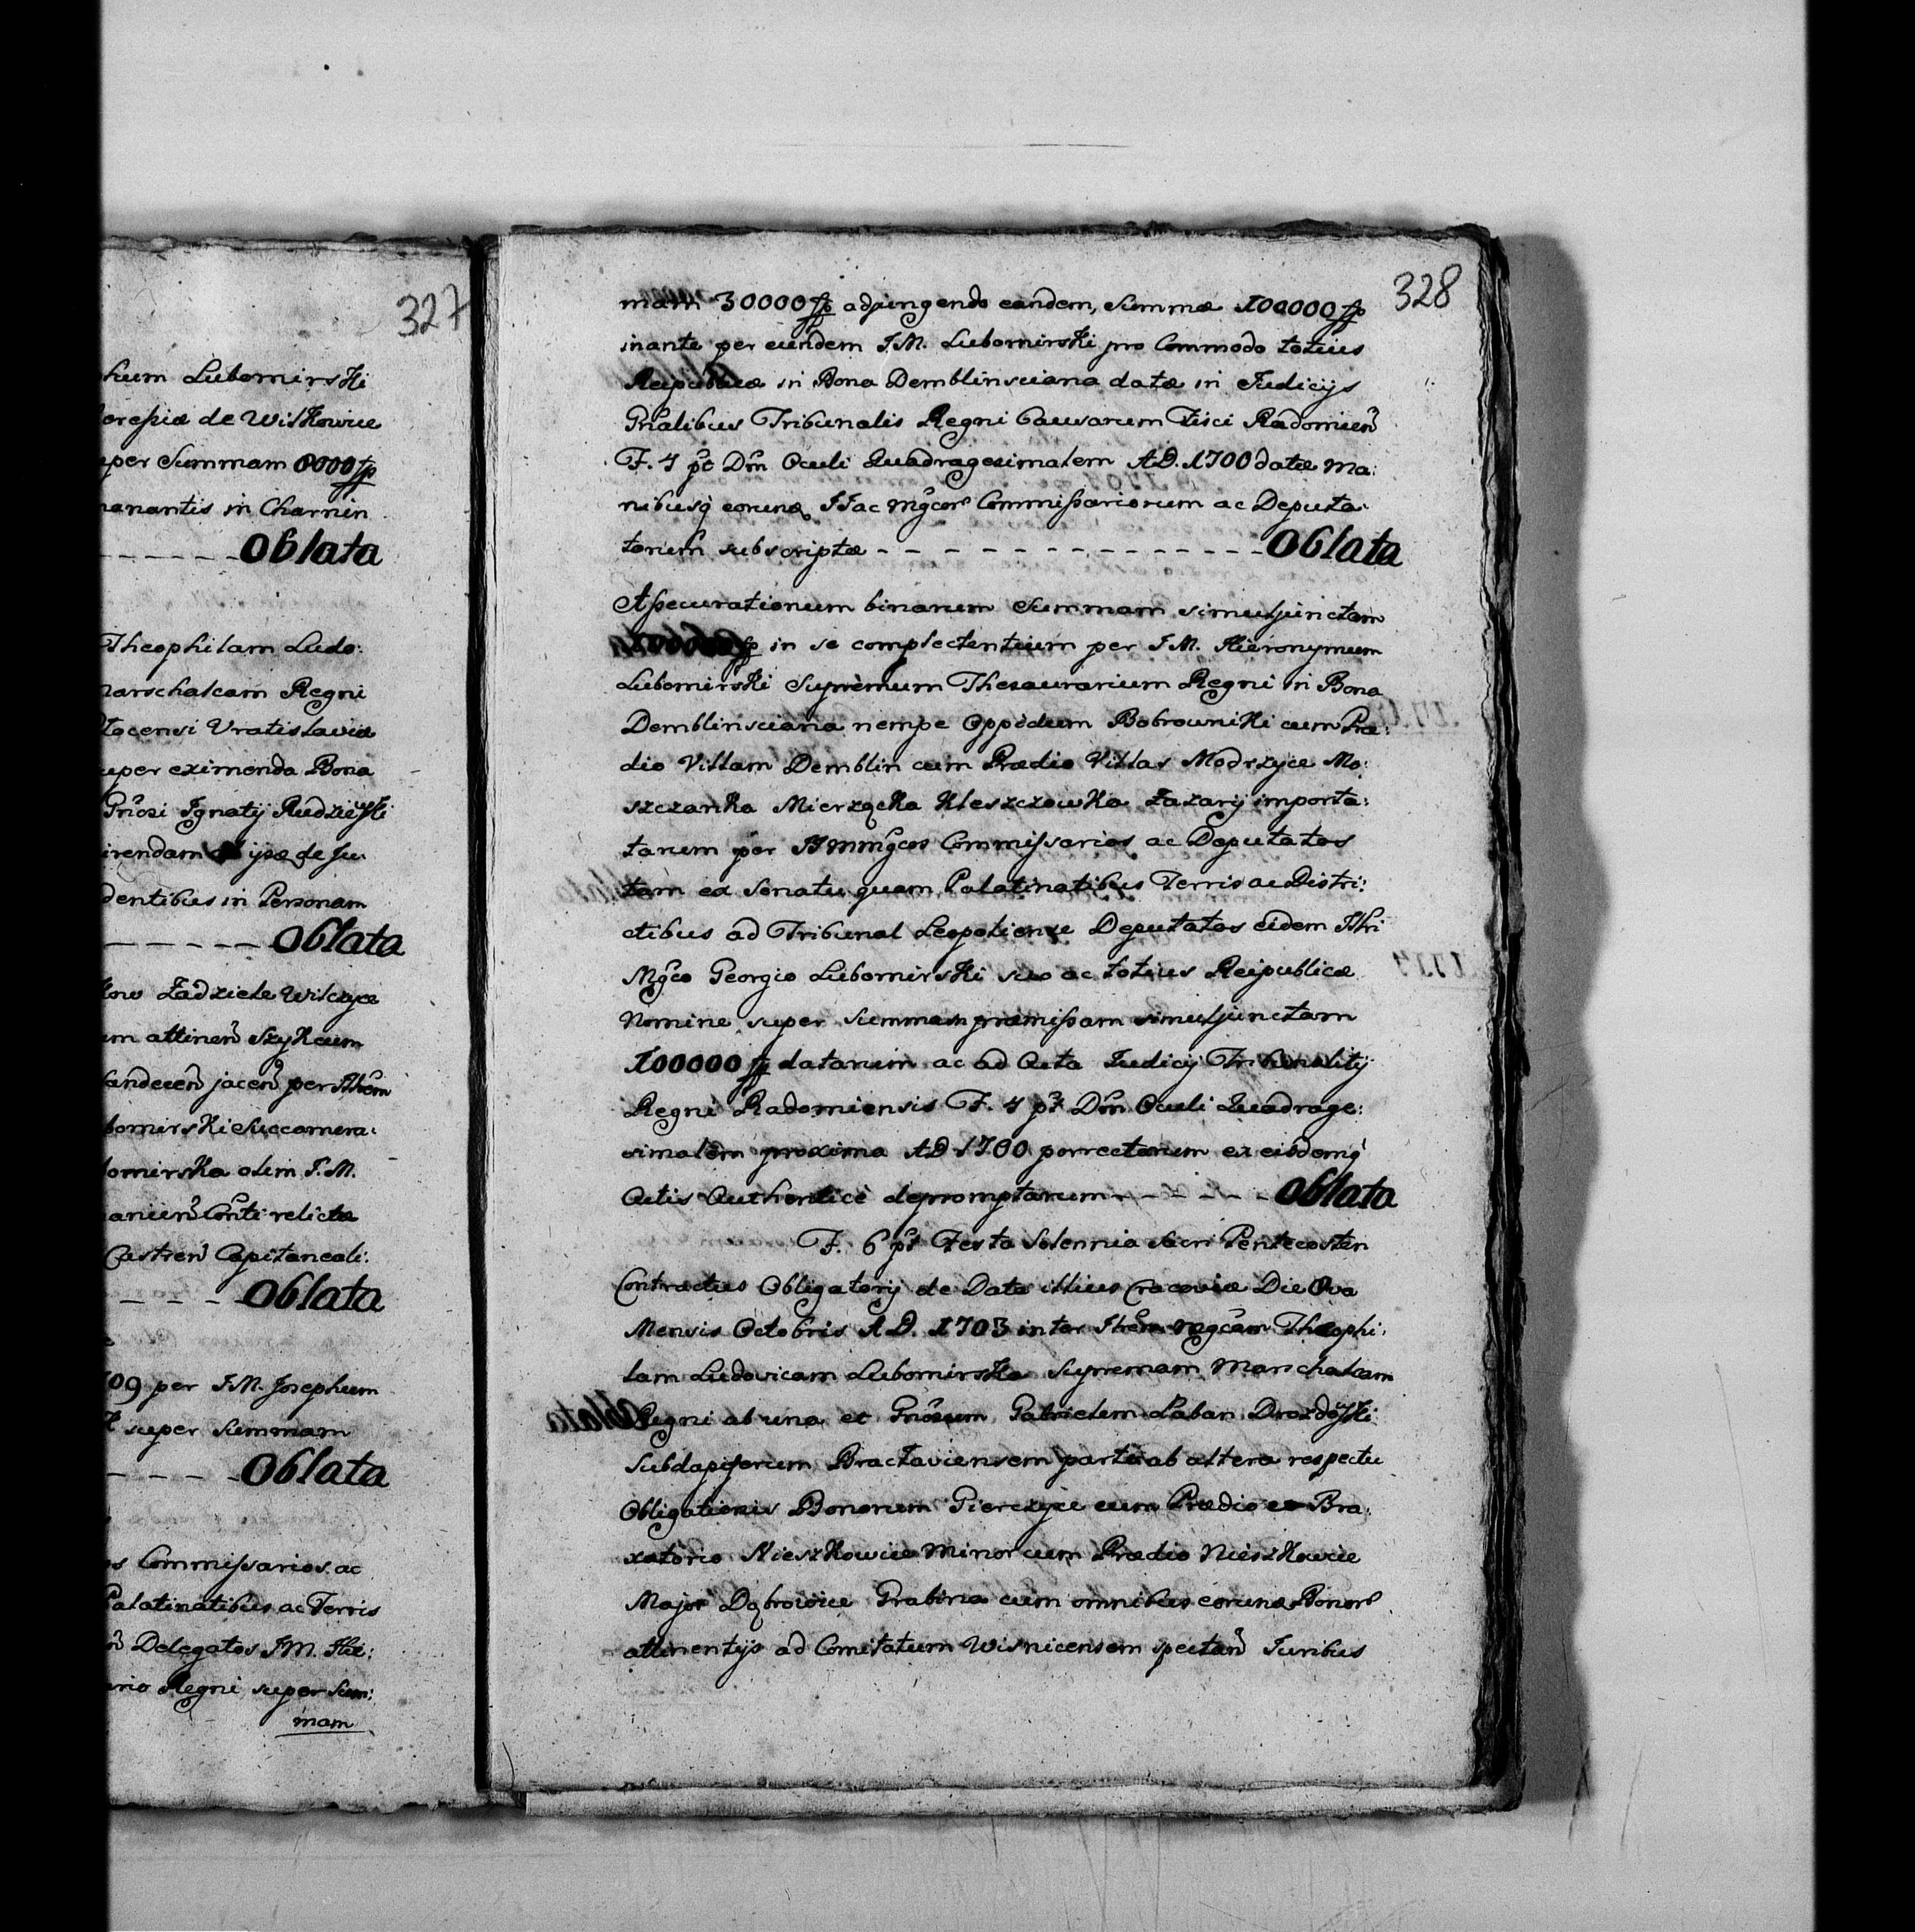 327
hum Lubomirski
de Witkowice
per Summam 8000 fp
manantis in Charnin
Oblata
Theophilam Ludo:
marschalcam Regni
Vratislaviæ
uper eximenda Bona
Gnosi Ignatij Rudziński
irendam de su:
dentibus in Personam
Oblata
Zadziele Wilczyce
um attinen Szyk cum
jacen per Illrem
bomirski Succamera:
bomirska olim J.M.
relictæ
Castren Capitaneali:
Oblata
09 per J.M. Josephum
super Summam
Oblata
os Commissarios ac
Palatinatibus ac Terris
Delegatos J.M. Hie:
ario Regni super Sum:
mam
328
mam 30000 fp adjungendo eandem, Summæ 100000 fp
inante per eundem J.M. Lubomirski pro Commodo totius
Reipublicæ in Bona Demblinsciana datæ in Judicijs
Gnalibus Tribunalis Regni Causarum Fisci Radomien
F. 4 pt Dm Oculi Quadragesimalem A.D. 1700 datæ ma:
nibusq eorunq JJ ac Mgcor Commissariorum ac Deputa:
torum subscriptæ - - - - - - - - - - - - - - Oblata
Assecurationum binarum Summam simul junctam
fp in se complectentium per J.M. Hieronymum
Lubomirski Supremum Thesaurarium Regni in Bona
Demblinsciana nempe Oppidum Bobrowniki cum Præ:
dio Villam Demblin cum Prædio Villas Modrzyce Mo:
szczanka Mierzączka Kleszczowka Zazary importa:
tarum per JJ Mmgcos Commissarios ac Deputatos
tam ex Senatu quam Palatinatibus Terris ac Distri:
ctibus ad Tribunal Leopoliense Deputatos eidem Illri
Mgco Georgio Lubomirski suo ac totius Reipublicæ
Nomine super Summam præmissam simul junctam
100000 fp datarum ac ad Acta Judicij Tribunalitij
Regni Radomiensis F. 4 pt Dm Oculi Quadrage:
simalem proxima A D 1700 porrectarum ex eisdemq
Actis Authenticè depromptarum - - - - - Oblata
F. 6 pt Festa Solennia Sacri Pentecosten
Contractus Obligatorij de Data illius Cracoviæ Die 8va
Mensis Octobris A.D. 1703 inter Illrem Mgcam Theophi:
lam Ludovicam Lubomirska Supremam Marschalcam
Regni ab una et Gnosum Gabrielem Laban Drozdoski
Subdapiferum Bractaviensem parte ab altera respectu
Obligationis Bonorum Gierczyce cum Prædio et Bra:
xatorio Nieszkowice Minor cum Prædio Nieszkowice
Major Dąbrowice Grabina cum omnibus eorunq Bonor
attinentijs ad Comitatum Wisnicensem spectan Juribus